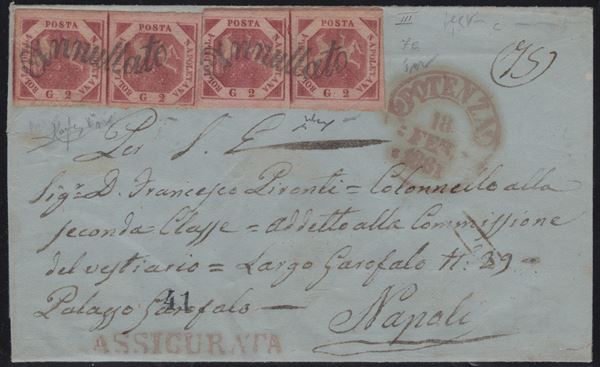 POSTA NAPOLETANA BOLLO DELLA G 2
POSTA NAPOLETANA BOLLO DELLA G 2
POSTA NAPOLETANA BOLLO DELLA G 2
POSTA NAPOLETANA BOLLO DELLA G 2
Annullato
Annullato
POTENZA
18
FEB
1861
Per S. E
Sigr D. Francesco Pironti = Colonnello alla
seconda Classe = addetto alla Commissione
del vestiario = Largo Garofalo N.º 29 =
Palazzo Garofalo —
41
Napoli
ASSICURATA